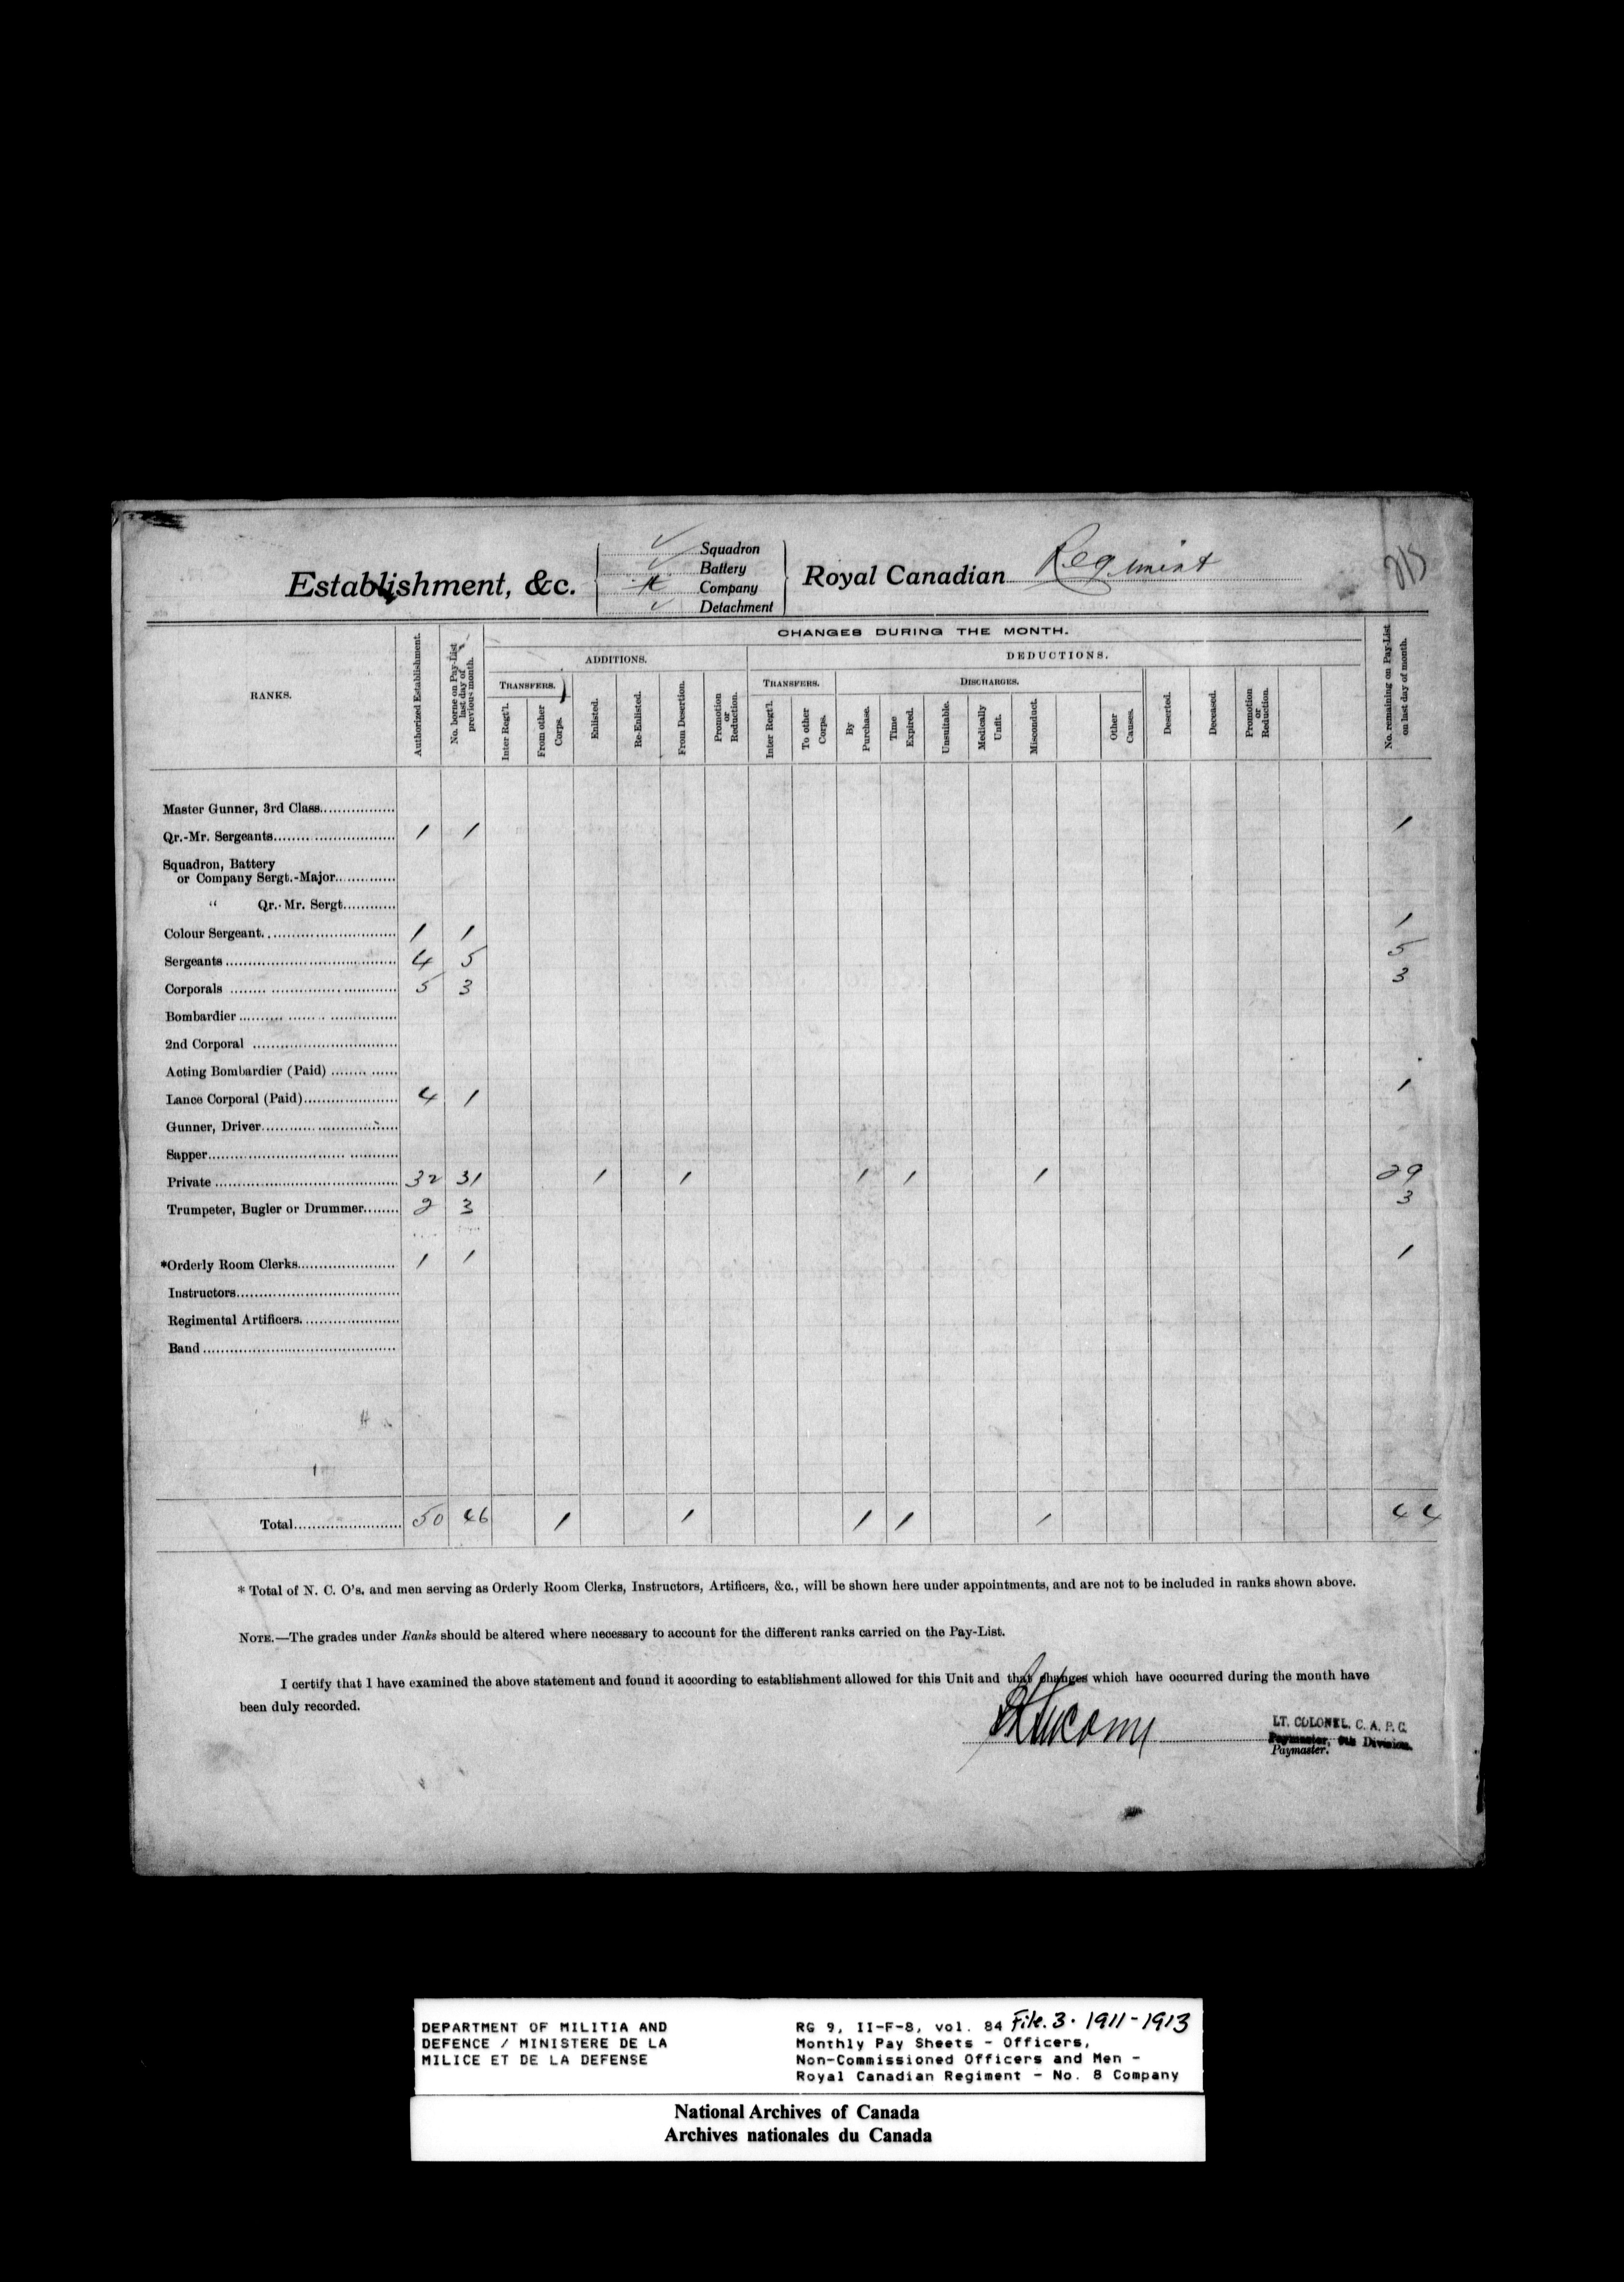 Squadron
Battery
Establishment, &c. Company Royal Canadian Regiment 215
Detachment
CHANGES DURING THE MONTH.
ADDITIONS. DEDUCTIONS.
RANKS. Authorized Establishment. No. borne on Pay-List last day of previous month. TRANSFERS. Inter Regt'l. From other Corps. Enlisted. Re-Enlisted. From Desertion. Promotion or Reduction. TRANSFERS. Inter Regt'l. To other Corps. DISCHARGES. By Purchase. Time Expired. Unsuitable. Medically Unfit. Misconduct. Other Causes. Deserted. Deceased. Promotion or Reduction. No. remaining on Pay-List on last day of month.
Master Gunner, 3rd Class
Qr.-Mr. Sergeants 1 1 1
Squadron, Battery
or Company Sergt.-Major
" Qr.-Mr. Sergt.
Colour Sergeant 1 1 1
Sergeants 4 5 5
Corporals 5 3 3
Bombardier
2nd Corporal
Acting Bombardier (Paid)
Lance Corporal (Paid) 4 1 1
Gunner, Driver
Sapper
Private 32 31 1 1 1 1 1 29
Trumpeter, Bugler or Drummer 2 3 3
*Orderly Room Clerks 1 1 1
Instructors
Regimental Artificers
Band
Total 50 46 1 1 1 1 1 44
* Total of N. C. O's. and men serving as Orderly Room Clerks, Instructors, Artificers, &c., will be shown here under appointments, and are not to be included in ranks shown above.
NOTE.—The grades under Ranks should be altered where necessary to account for the different ranks carried on the Pay-List.
I certify that I have examined the above statement and found it according to establishment allowed for this Unit and that changes which have occurred during the month have
been duly recorded.
LT. COLONEL. C. A. P. C.
Paymaster, 6th Division.
Paymaster.
DEPARTMENT OF MILITIA AND
DEFENCE / MINISTERE DE LA
MILICE ET DE LA DEFENSE
RG 9, II-F-8, vol. 84 File. 3. 1911-1913
Monthly Pay Sheets - Officers,
Non-Commissioned Officers and Men -
Royal Canadian Regiment - No. 8 Company
National Archives of Canada
Archives nationales du Canada